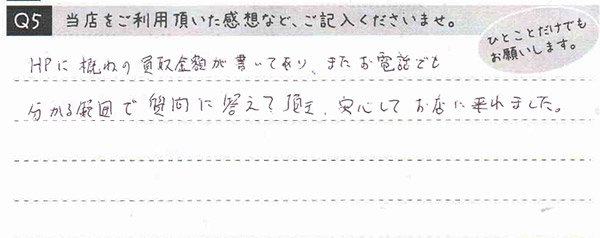 Q5 当店をご利用頂いた感想など、ご記入くださいませ。
ひとことだけでも
お願いします。
HPに概ねの買取金額が書いてあり、またお電話でも
分かる範囲で質問に答えて頂き、安心してお店に来れました。